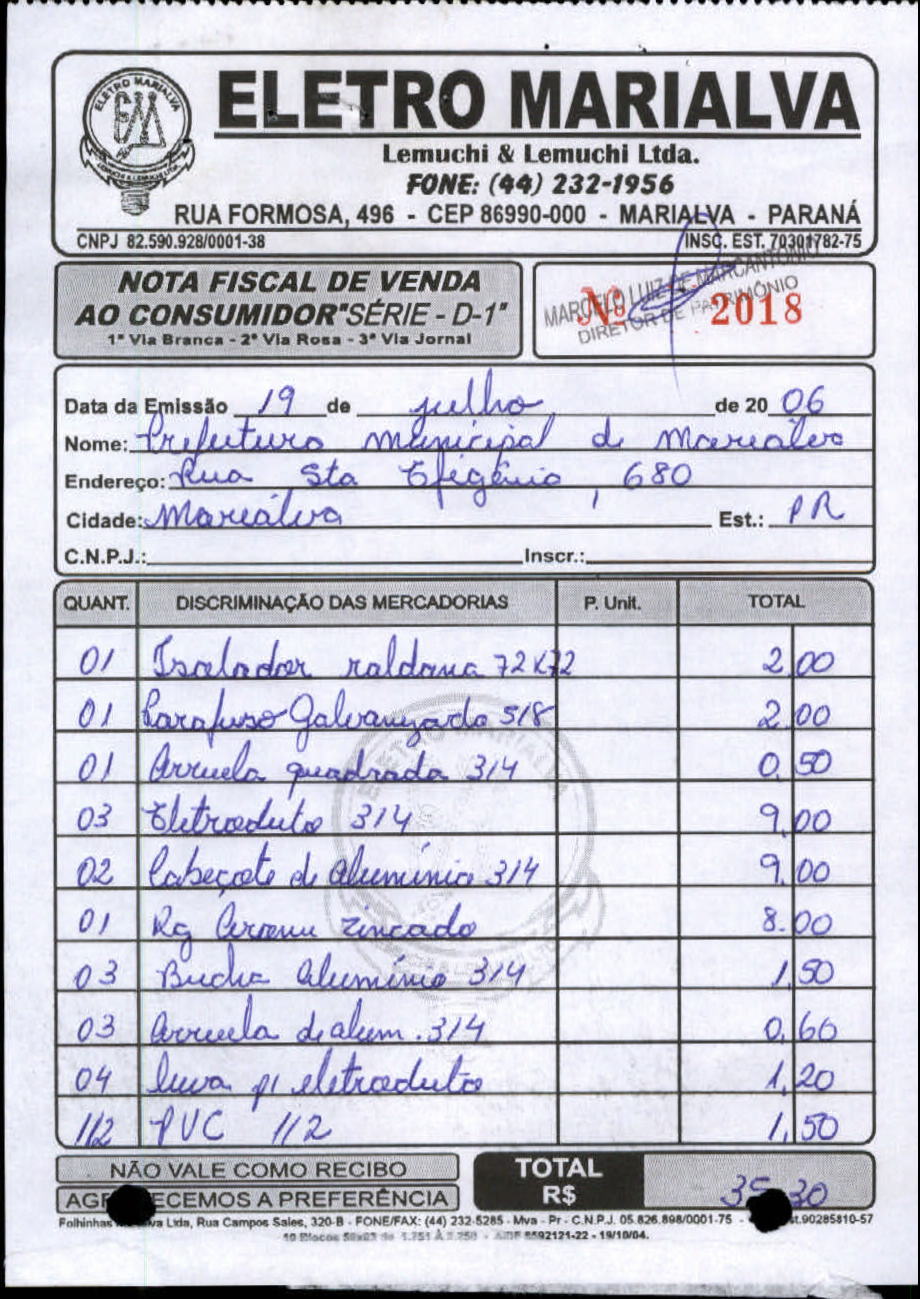 ELETRO MARIALVA
Lemuchi & Lemuchi Ltda.
FONE: (44) 232-1956
RUA FORMOSA, 496 - CEP 86990-000 - MARIALVA - PARANÁ
CNPJ 82.590.928/0001-38 INSC. EST. 70301782-75
NOTA FISCAL DE VENDA
AO CONSUMIDOR "SÉRIE - D-1"
1ª Via Branca - 2ª Via Rosa - 3ª Via Jornal
MARCELO LUIZ DE MARCANTONIO
DIRETOR DE PATRIMÔNIO
Nº 2018
Data da Emissão 19 de julho de 20 06
Nome: Prefeitura Municipal de Marialva
Endereço: Rua Sta Efigênia, 680
Cidade: Marialva Est.: PR
C.N.P.J.: Inscr.:
QUANT. DISCRIMINAÇÃO DAS MERCADORIAS P. Unit. TOTAL
01 Isolador roldana 72x72 2,00
01 Parafuso Galvanizado 5/8 2,00
01 Arruela quadrada 3/4 0,50
03 Eletroduto 3/4 9,00
02 Cabeçote de Alumínio 3/4 9,00
01 Kg Arame zincado 8.00
03 Bucha alumínio 3/4 1,50
03 Arruela de alum. 3/4 0,60
04 luva p/ eletroduto 1,20
1/2 PVC 1/2 1,50
NÃO VALE COMO RECIBO
TOTAL
R$ 35,30
ECEMOS A PREFERÊNCIA
Folhinhas Ltda, Rua Campos Sales, 320-B - FONE/FAX: (44) 232-5285 - Mva - Pr - C.N.P.J. 05.826.898/0001-75 - 90285810-57
10 Blocos 50x03 de 1.751 À 2.250 - AIDF 5592121-22 - 19/10/04.